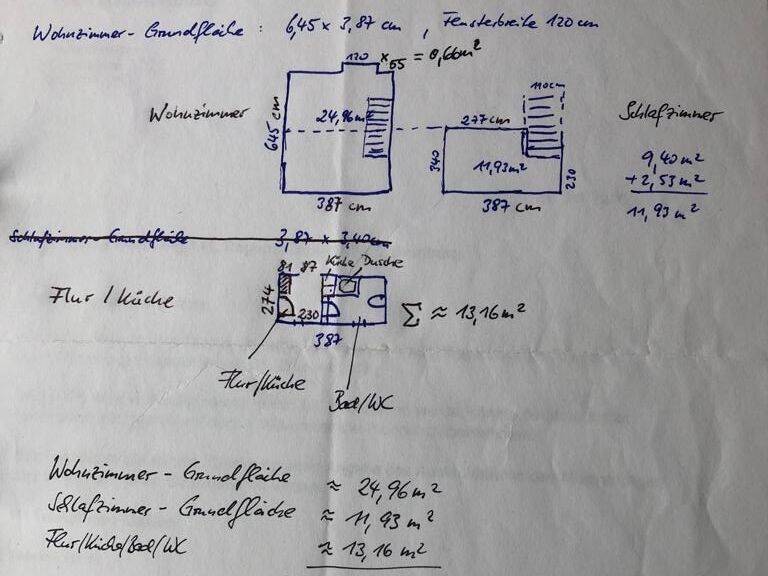 Wohnzimmer-Grundfläche : 6,45 x 3,87 cm , Fensterbreite 120 cm
120 x 55 = 0,66m²
Wohnzimmer
645 cm
24,96m²
387 cm
110cm
277 cm
340
11,93m²
230
387 cm
Schlafzimmer
9,40m²
+2,53m²
11,93m²
Schlafzimmer-Grundfläche 3,87 x 3,40cm
81 87 Küche Dusche
Flur / Küche
274
230
387
Σ ≈ 13,16m²
Flur/Küche
Bad/WC
Wohnzimmer - Grundfläche ≈ 24,96m²
Schlafzimmer - Grundfläche ≈ 11,93m²
Flur/Küche/Bad/WC ≈ 13,16m²